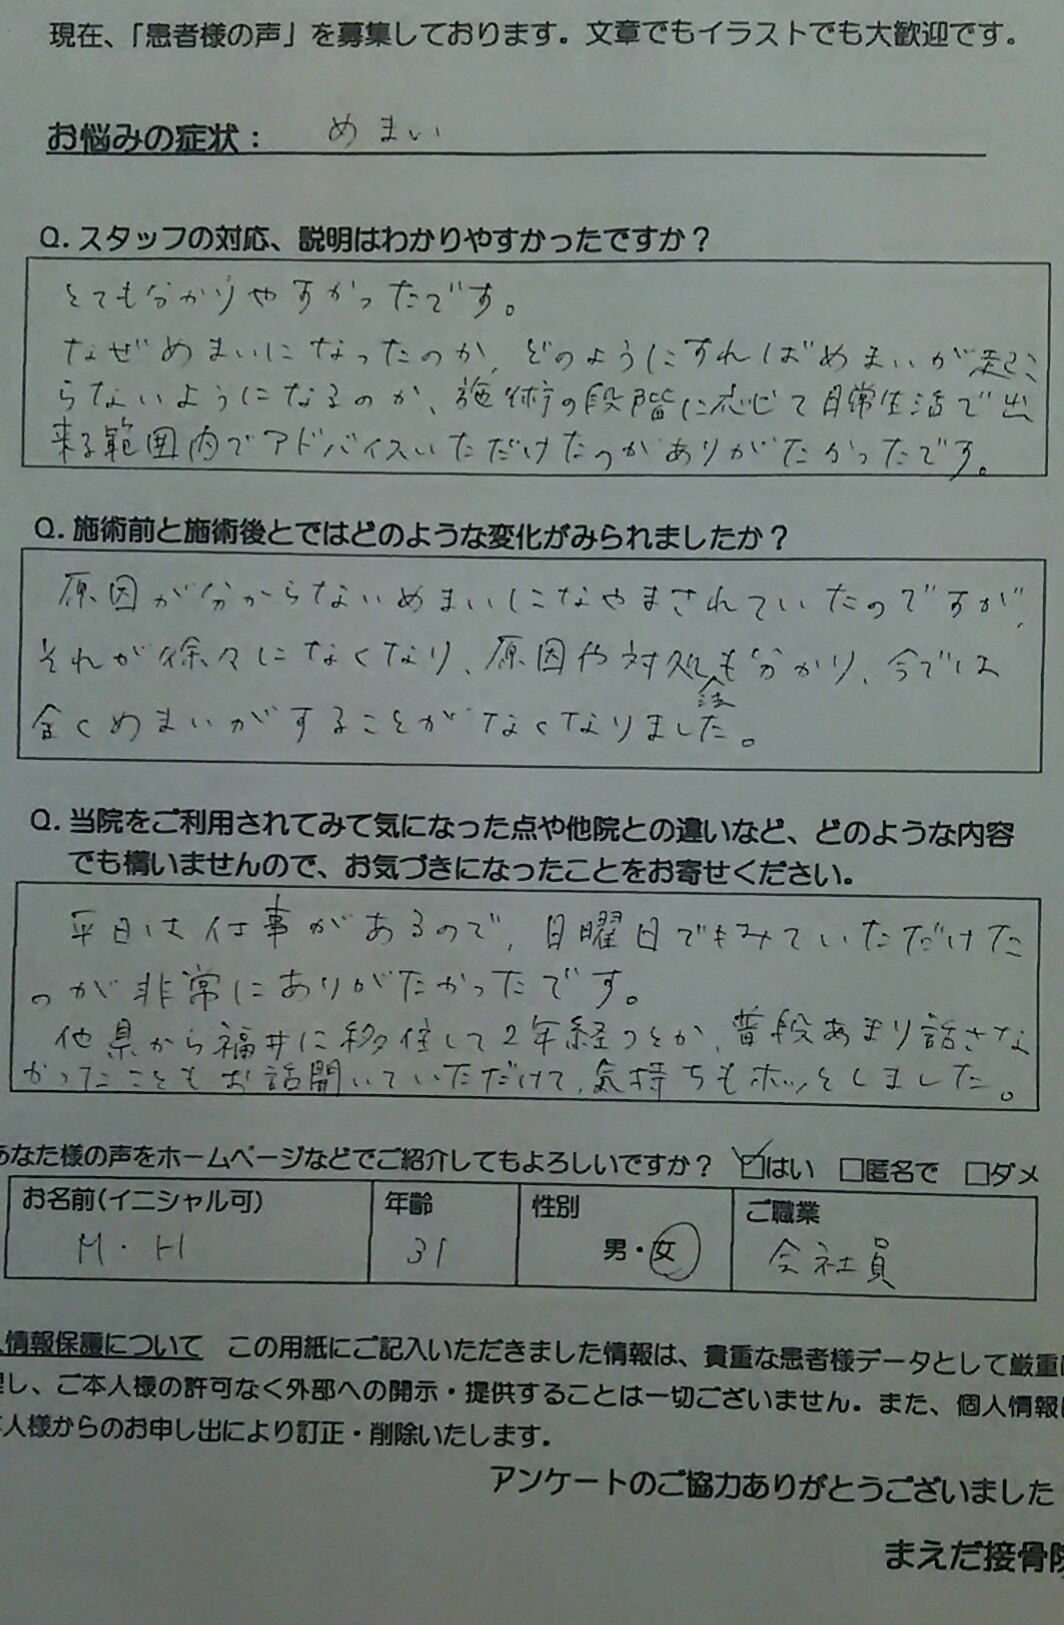 現在、「患者様の声」を募集しております。文章でもイラストでも大歓迎です。
お悩みの症状： めまい
Q. スタッフの対応、説明はわかりやすかったですか？
とても分かりやすかったです。
なぜめまいになったのか、どのようにすればめまいが起こ
らないようになるのか、施術の段階に応じて日常生活で出
来る範囲内でアドバイスいただけたのがありがたかったです。
Q. 施術前と施術後とではどのような変化がみられましたか？
原因が分からないめまいになやまされていたのですが、
それが徐々になくなり、原因や対処法も分かり、今では
全くめまいがすることがなくなりました。
Q. 当院をご利用されてみて気になった点や他院との違いなど、どのような内容
でも構いませんので、お気づきになったことをお寄せください。
平日は仕事があるので、日曜日でもみていただけた
のが非常にありがたかったです。
他県から福井に移住して2年経つとか、普段あまり話さな
かったこともお話聞いていただけて、気持ちもホッとしました。
あなた様の声をホームページなどでご紹介してもよろしいですか？ ☑はい □匿名で □ダメ
お名前(イニシャル可) 年齢 性別 ご職業
M・H 31 男・女 会社員
人情報保護について この用紙にご記入いただきました情報は、貴重な患者様データとして厳重に
理し、ご本人様の許可なく外部への開示・提供することは一切ございません。また、個人情報は
本人様からのお申し出により訂正・削除いたします。
アンケートのご協力ありがとうございました
まえだ接骨院